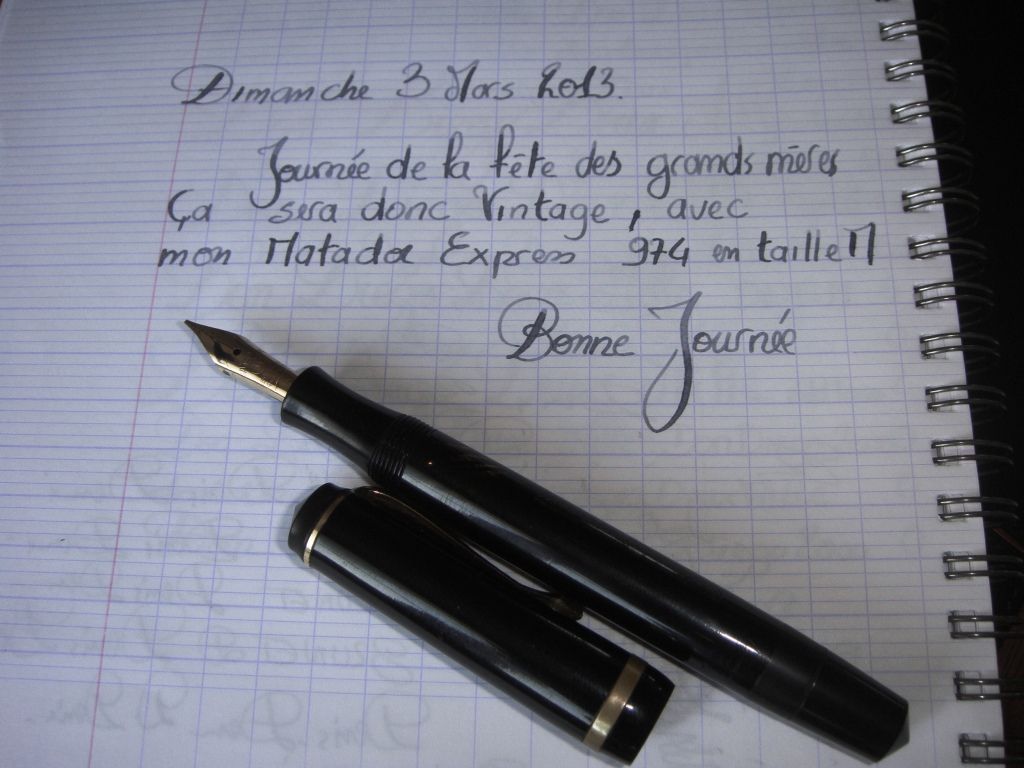 Dimanche 3 Mars 2013.
Journée de la fête des grands mères
Ça sera donc Vintage, avec
mon Matador Express 974 en taille M
Bonne Journée